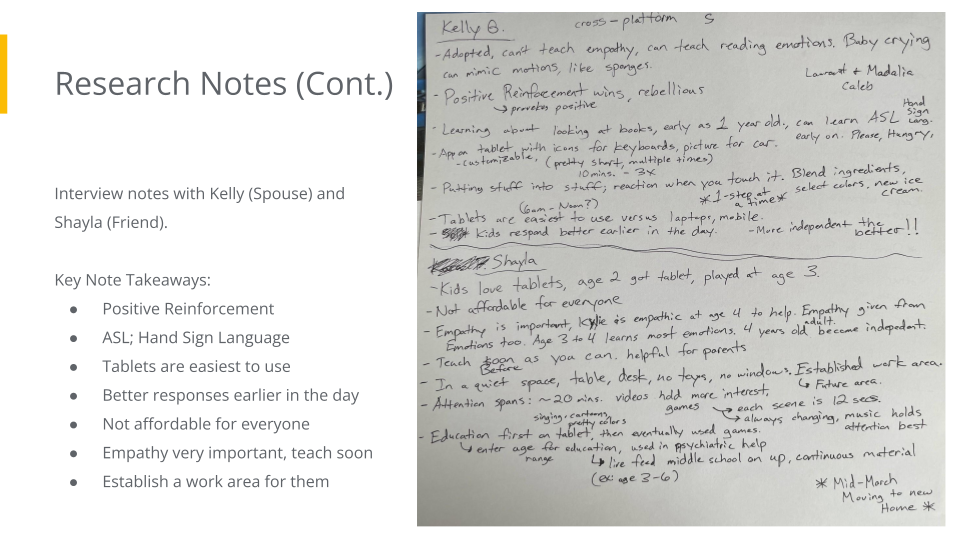 Research Notes (Cont.)
Interview notes with Kelly (Spouse) and
Shayla (Friend).
Key Note Takeaways:
● Positive Reinforcement
● ASL; Hand Sign Language
● Tablets are easiest to use
● Better responses earlier in the day
● Not affordable for everyone
● Empathy very important, teach soon
● Establish a work area for them
Kelly G. cross-platform S
- Adopted, can't teach empathy, can teach reading emotions. Baby crying
can mimic motions, like sponges.
& Madalia
Caleb
- Positive Reinforcement wins, rebellious
↳ provokes positive
Hand
Sign
Lang.
- Learning about looking at books, early as 1 year old, can learn ASL
early on. Please, Hungry,
- App on tablet with icons for keyboards, picture for car.
- customizable, (pretty short, multiple times)
10 mins. - 3x
- Putting stuff into stuff, reaction when you touch it. Blend ingredients,
select colors, new ice
cream.
* 1-step at
a time *
(6am - Noon?)
- Tablets are easiest to use versus laptops, mobile.
- Kids respond better earlier in the day. - More independent the
better!!
Shayla
- Kids love tablets, age 2 got tablet, played at age 3.
- Not affordable for everyone
- Empathy is important, Kylie is empathic at age 4 to help. Empathy given from
adult.
Emotions too. Age 3 to 4 learns most emotions. 4 years old become independent.
- Teach soon as you can. helpful for parents
Before
- In a quiet space, table, desk, no toys, no windows. Established work area.
↳ Future area.
- Attention spans: ~20 mins. videos hold more interest,
games → each scene is 12 secs.
→ always changing, music holds
attention best
singing, cartoons,
pretty colors
- Education first on tablet, then eventually used games.
↳ enter age for education, used in psychiatric help
range
↳ live feed middle school on up, continuous material
(ex: age 3-6)
* Mid-March
Moving to new
Home *